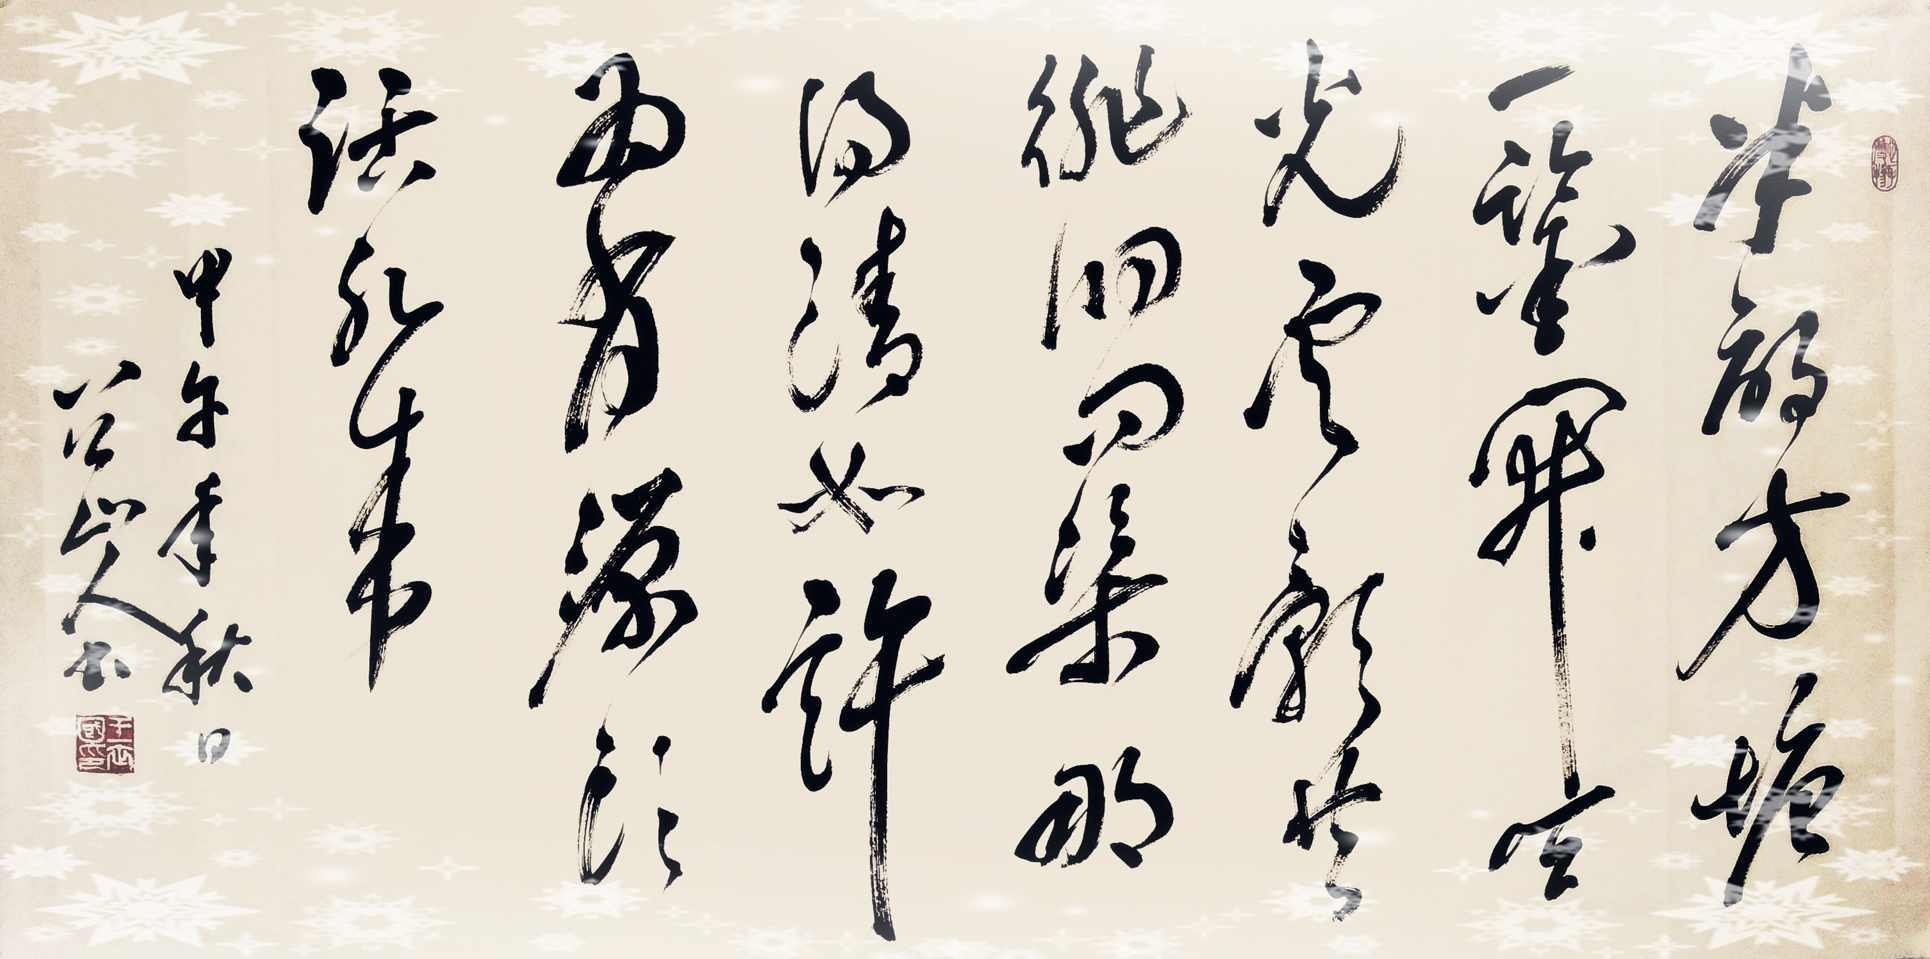 半亩方塘
一鑑开天
光云影共
徘徊问渠那
得清如许
为有源头
活水来
甲午年秋日
公山人书